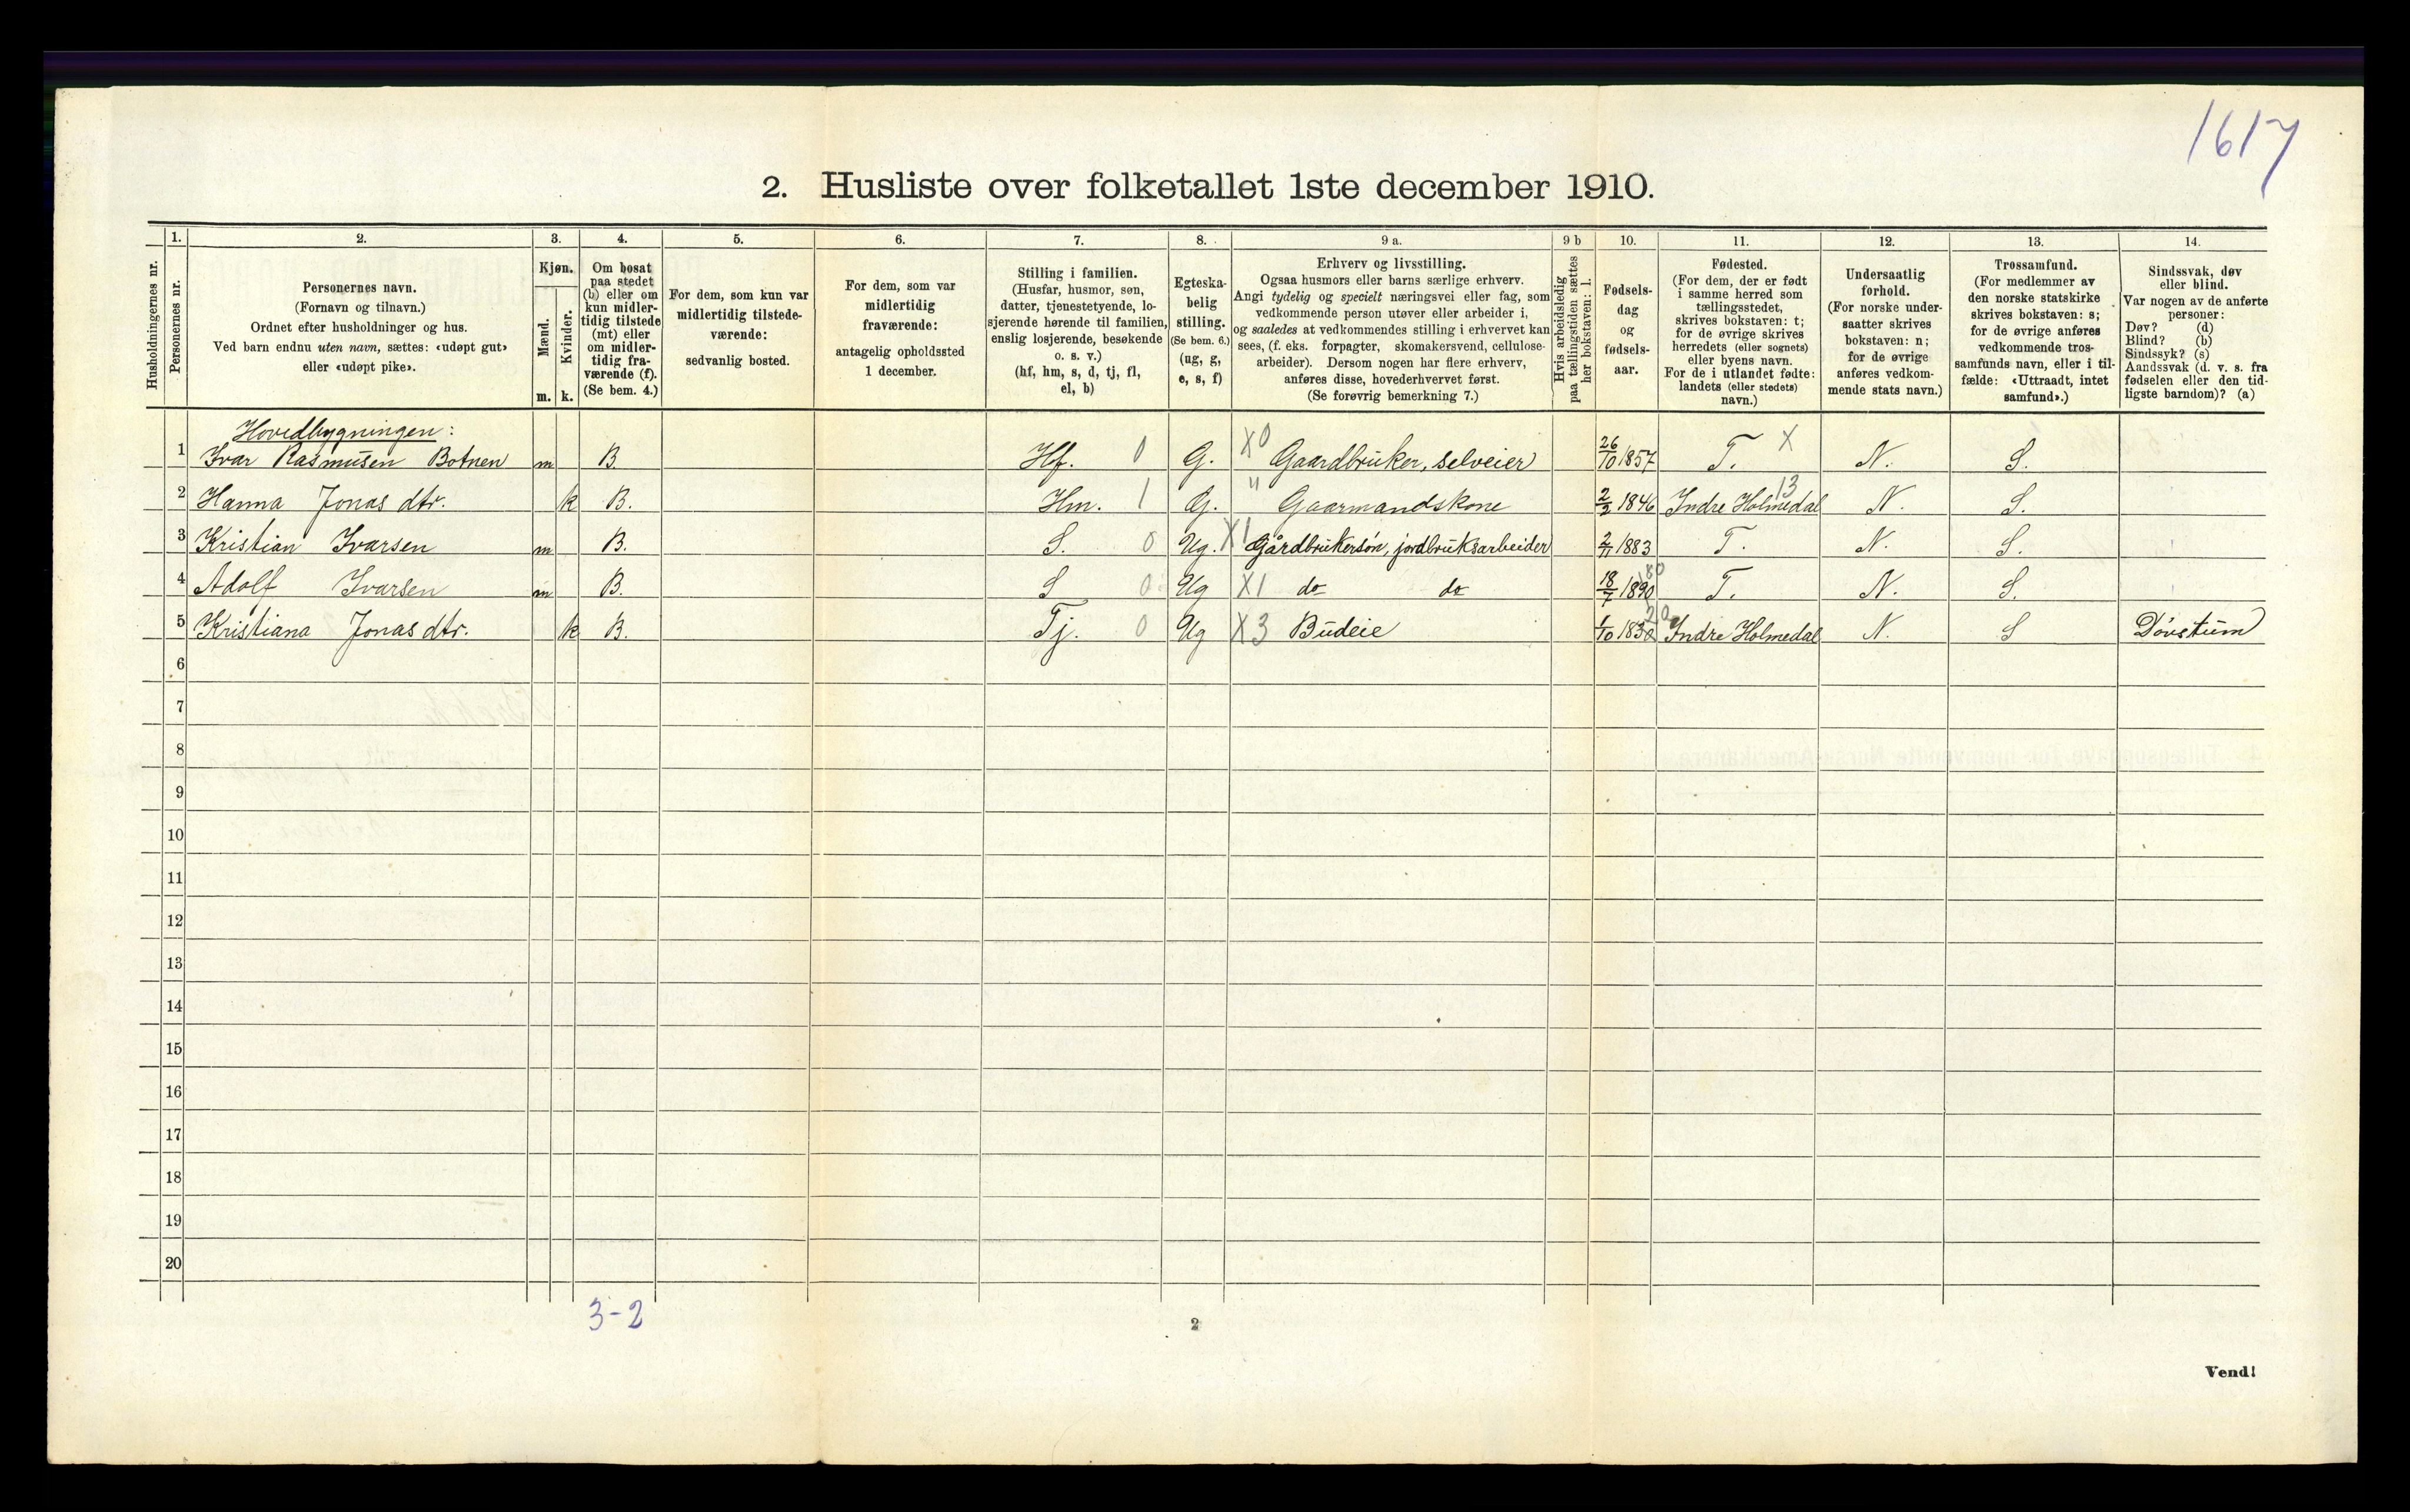 1617
2. Husliste over folketallet 1ste december 1910.
Husholdningernes nr.
1.
Personernes nr.
2.
Personernes navn.
(Fornavn og tilnavn.)
Ordnet efter husholdninger og hus.
Ved barn endnu uten navn, sættes: «udøpt gut»
eller «udøpt pike».
3.
Kjøn.
Mænd.
Kvinder.
m. k.
4.
Om bosat
paa stedet
(b) eller om
kun midler-
tidig tilstede
(mt) eller
om midler-
tidig fra-
værende (f).
(Se bem. 4.)
5.
For dem, som kun var
midlertidig tilstede-
værende:
sedvanlig bosted.
6.
For dem, som var
midlertidig
fraværende:
antagelig opholdssted
1 december.
7.
Stilling i familien.
(Husfar, husmor, søn,
datter, tjenestetyende, lo-
sjerende hørende til familien,
enslig losjerende, besøkende
o. s. v.)
(hf, hm, s, d, tj, fl,
el, b)
8.
Egteska-
belig
stilling.
(Se bem. 6.)
(ug, g,
e, s, f)
9 a.
Erhverv og livsstilling.
Ogsaa husmors eller barns særlige erhverv.
Angi tydelig og specielt næringsvei eller fag, som
vedkommende person utøver eller arbeider i,
og saaledes at vedkommendes stilling i erhvervet kan
sees, (f. eks. forpagter, skomakersvend, cellulose-
arbeider). Dersom nogen har flere erhverv,
anføres disse, hovederhvervet først.
(Se forøvrig bemerkning 7.)
9 b
Hvis arbeidsledig
paa tællingstiden sættes
her bokstaven: l.
10.
Fødsels-
dag
og
fødsels-
aar.
11.
Fødested.
(For dem, der er født
i samme herred som
tællingsstedet,
skrives bokstaven: t;
for de øvrige skrives
herredets (eller sognets)
eller byens navn.
For de i utlandet fødte:
landets (eller stedets)
navn.)
12.
Undersaatlig
forhold.
(For norske under-
saatter skrives
bokstaven: n;
for de øvrige
anføres vedkom-
mende stats navn.)
13.
Trossamfund.
(For medlemmer av
den norske statskirke
skrives bokstaven: s;
for de øvrige anføres
vedkommende tros-
samfunds navn, eller i til-
fælde: «Uttraadt, intet
samfund».)
14.
Sindssvak, døv
eller blind.
Var nogen av de anførte
personer:
Døv? (d)
Blind? (b)
Sindssyk? (s)
Aandssvak (d. v. s. fra
fødselen eller den tid-
ligste barndom)? (a)
Hovedbygningen:
1 Ivar Rasmusen Botnen m B. Hf. 0 G. X0 Gaardbruker, selveier 26/10 1857 T. X N. S.
2 Hanna Jonas dtr. k B. Hm. 1 G. " Gaarmandskone 2/2 1846 Indre Holmedal 13 N. S.
3 Kristian Ivarsen m B. S. 0 Ug. X1 Gårdbrukersøn, jordbruksarbeider 2/11 1883 T. N. S.
4 Adolf Ivarsen m B. S 0 Ug X1 do do 18/7 1890 T. N. S.
5 Kristiana Jonas dtr. k B. Tj. 0 Ug X3 Budeie 1/10 1830 Indre Holmedal N. S Døvstum
6
7
8
9
10
11
12
13
14
15
16
17
18
19
20
3-2
2
Vend!